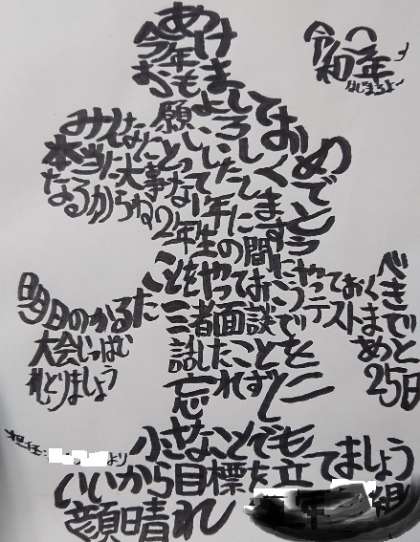 令和
年
はじまるよー
あけましておめでとう
今年もよろしく
お願いいたします
みんなにとって
本当に大事な1年に
なるからね
2年生の間にやっておくべき
ことをやっておこう
テストまであと25日
三者面談で
話したことを
忘れずに
明日のかるた
大会いっぱい
札とりましょう
小さなことでも
いいから目標を立てましょう
顔晴れ
年 組
担任 より